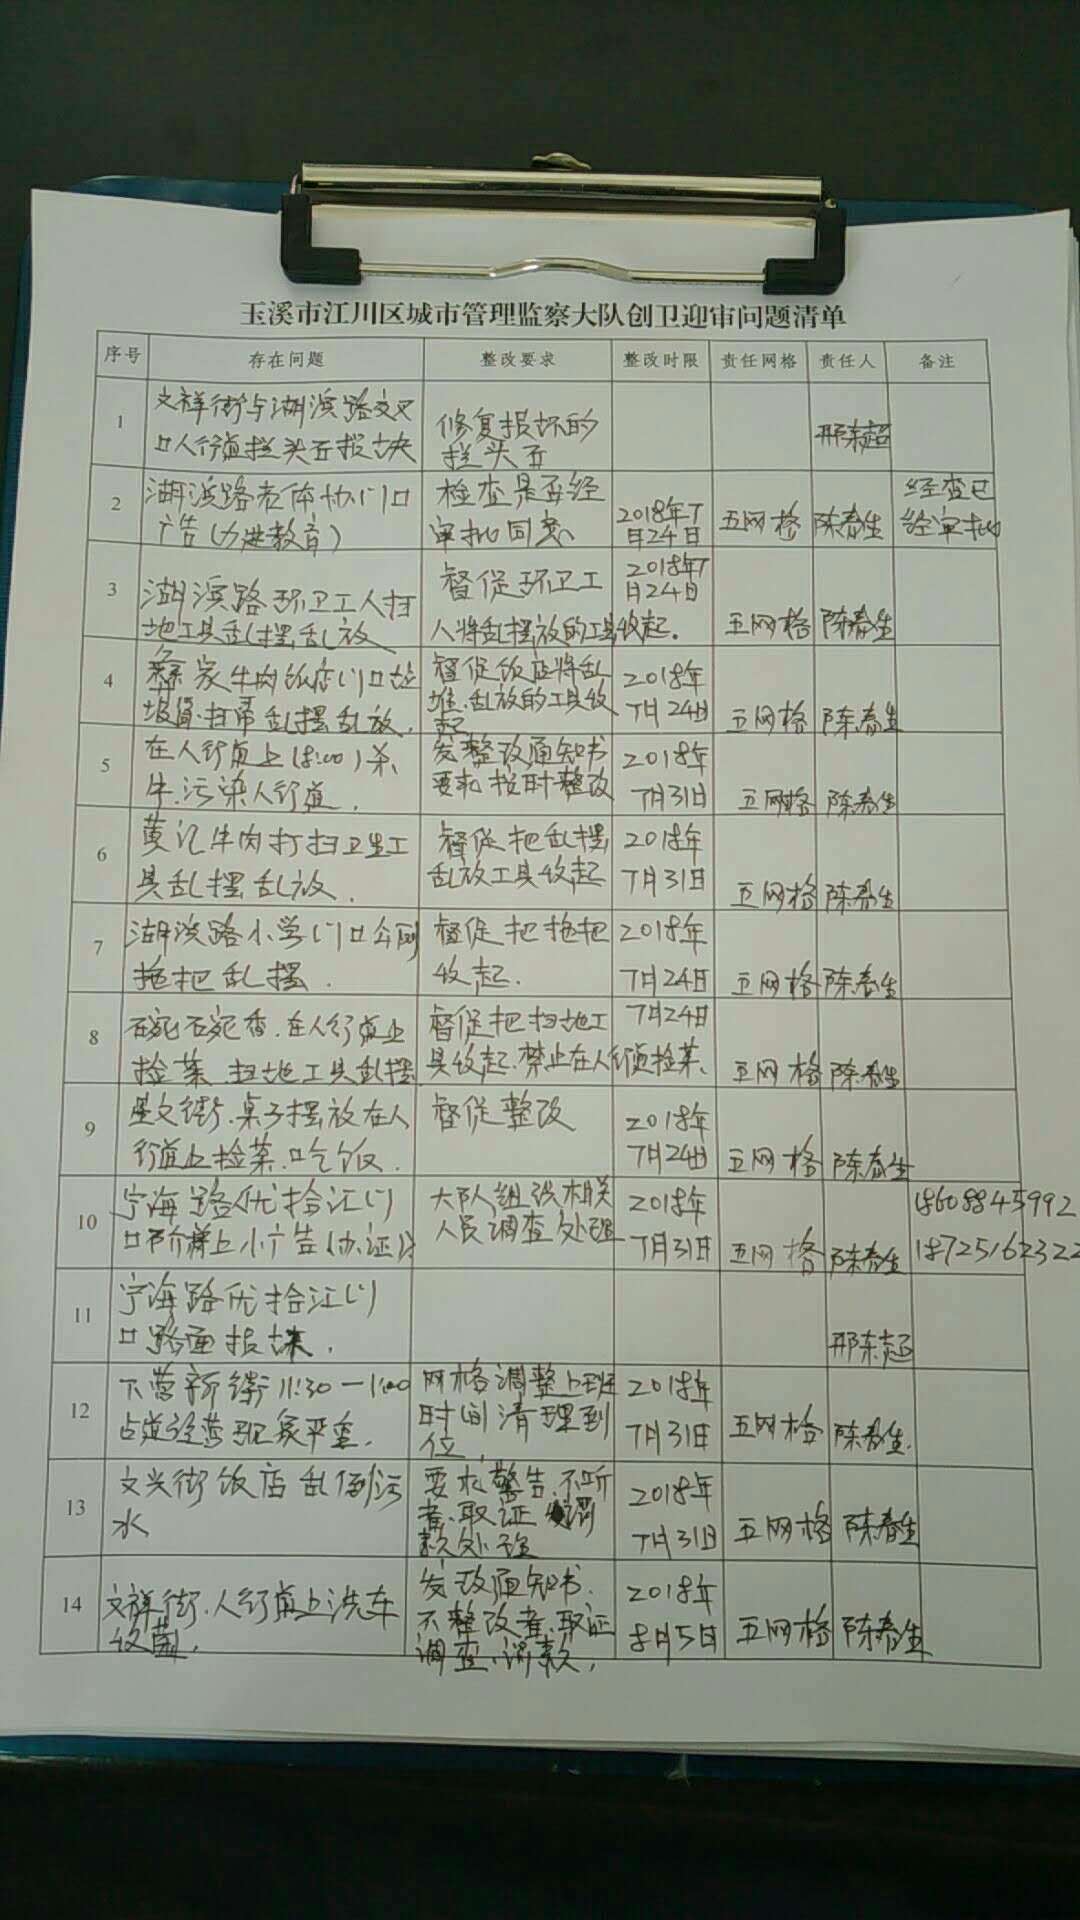 玉溪市江川区城市管理监察大队创卫迎审问题清单
序号 存在问题 整改要求 整改时限 责任网格 责任人 备注
1
文祥街与湖滨路交叉
口人行道拦头石损坏
修复损坏的
拦头石
邢东超
2
湖滨路老体协门口
广告(力进教育)
检查是否经
审批同意、
2018年7
月24日
五网格
陈春生
经查已
经审批
3
湖滨路环卫工人扫
地工具乱摆乱放
督促环卫工
人将乱摆放的工具收起。
2018年7
月24日
五网格
陈春生
4
家牛肉饭店门口垃
圾、扫帚乱摆乱放.
督促饭店将乱
堆、乱放的工具收
起
2018年
7月24日
五网格
陈春生
5
在人行道上(8:00)杀
牛.污染人行道.
发整改通知书
要求按时整改
2018年
7月31日
五网格
陈春生
6
黄记牛肉打扫卫生工
具乱摆乱放.
督促把乱摆
乱放工具收起
2018年
7月31日
五网格
陈春生
7
湖滨路小学门口公厕
拖把乱摆.
督促把拖把
收起.
2018年
7月24日
五网格
陈春生
8
碗碗香.在人行道上
捡菜.扫地工具乱摆
督促把扫地工
具收起.禁止在人行道捡菜、
7月24日
五网格
陈春生
9
星文街.桌子摆放在人
行道上捡菜.吃饭.
督促整改
2018年
7月24日
五网格
陈春生
10
宁海路优拾汇门
口阶梯上小广告(办证)
大队组织相关
人员调查处理
2018年
7月31日
五网格
陈春生
18608845992
18725162322
11
宁海路优拾汇门
口路面损坏.
邢东超
12
下营新街11:30—1:00
占道经营现象严重.
网格调整上班
时间清理到
位.
2018年
7月31日
五网格
陈春生.
13
文兴街饭店乱倒污
水
要求警告.不听
者.取证 罚
款处理
2018年
7月31日
五网格
陈春生
14
文祥街.人行道上洗车
设备.
发改通知书.
不整改者.取证
调查、罚款.
2018年
8月5日
五网格
陈春生